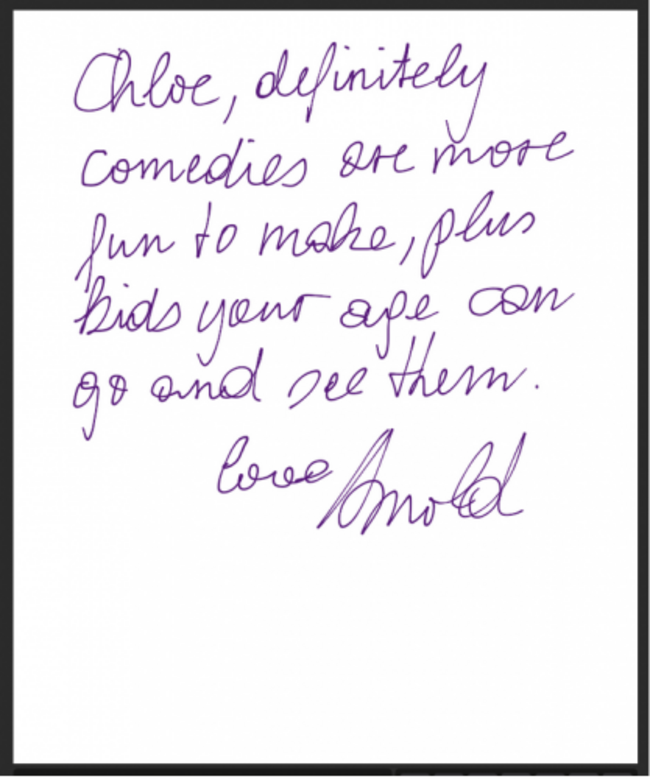 Chloe, definitely
comedies are more
fun to make, plus
kids your age can
go and see them.
love Arnold